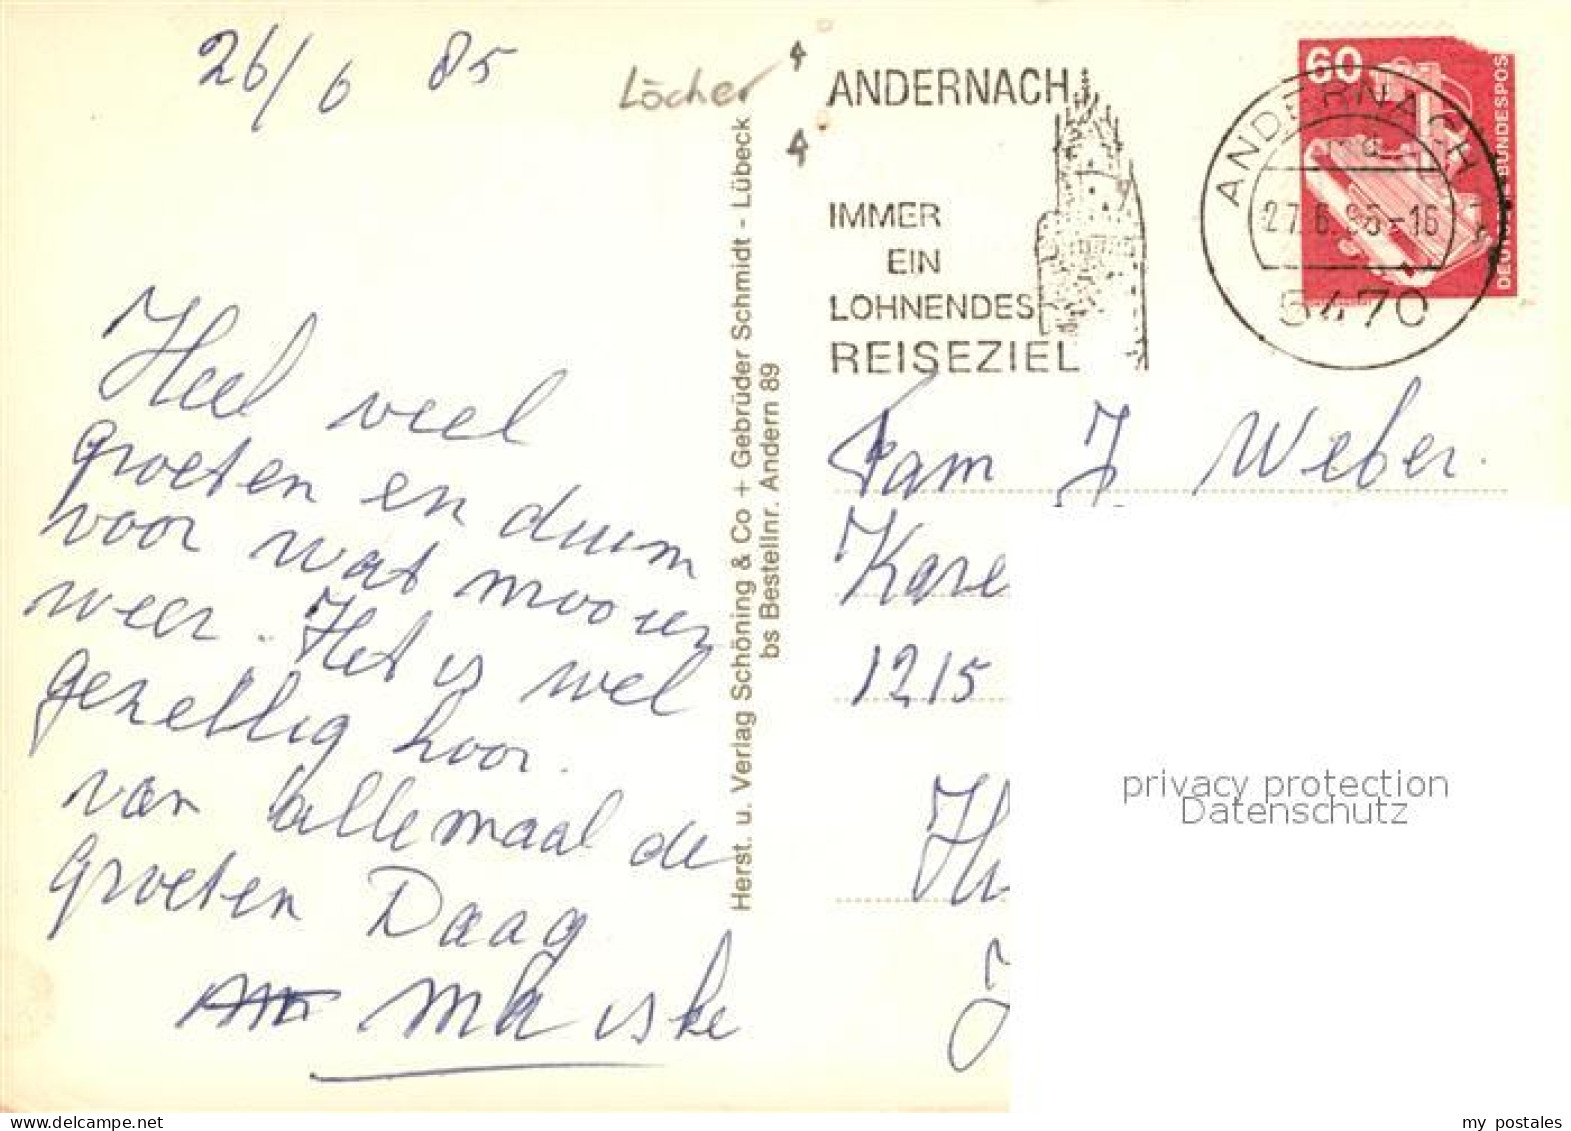 26/6 85
Löcher
Heel veel
groeten en duim
voor wat mooier
weer. Het is wel
gezellig hoor.
van allemaal de
Groeten Daag
Herst. u. Verlag Schöning & Co + Gebrüder Schmidt - Lübeck
bs Bestellnr. Andern 89
ANDERNACH
IMMER
EIN
LOHNENDES
REISEZIEL
60
DEUTSCHE BUNDESPOST
ANDERNACH
27.6.85-16
5470
Fam J Weber.
1215
privacy protection
Datenschutz
delcampe.net
my_postales